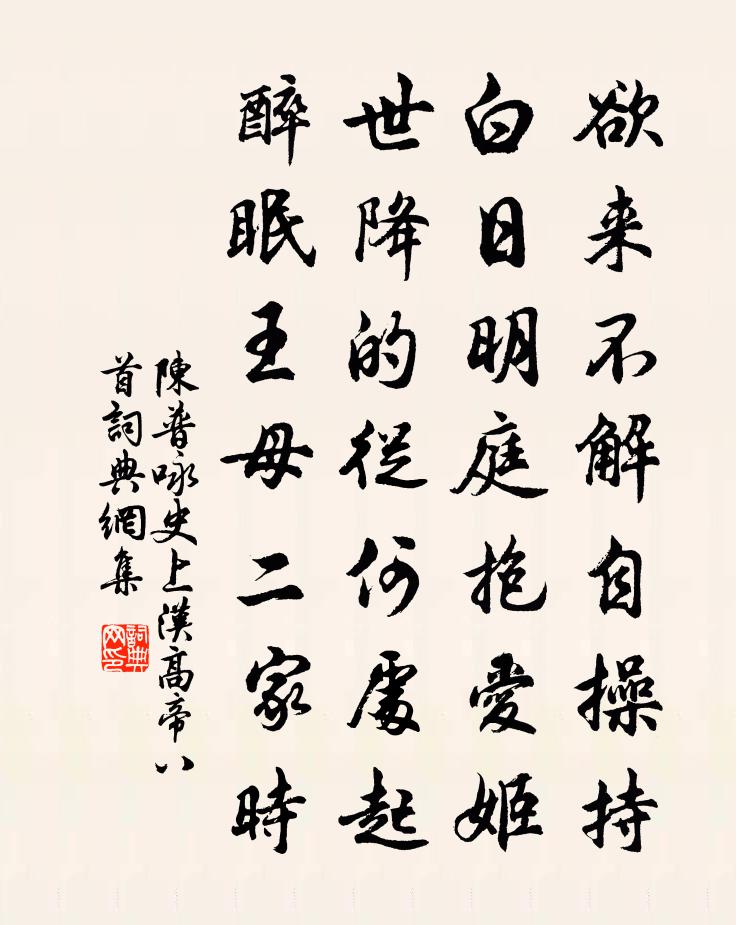 欲来不解自操持
白日明庭抱愛姬
世降的從何處起
醉眠王母二家時
陳普咏史上漢高帝八
首詞典網集
詞典網印